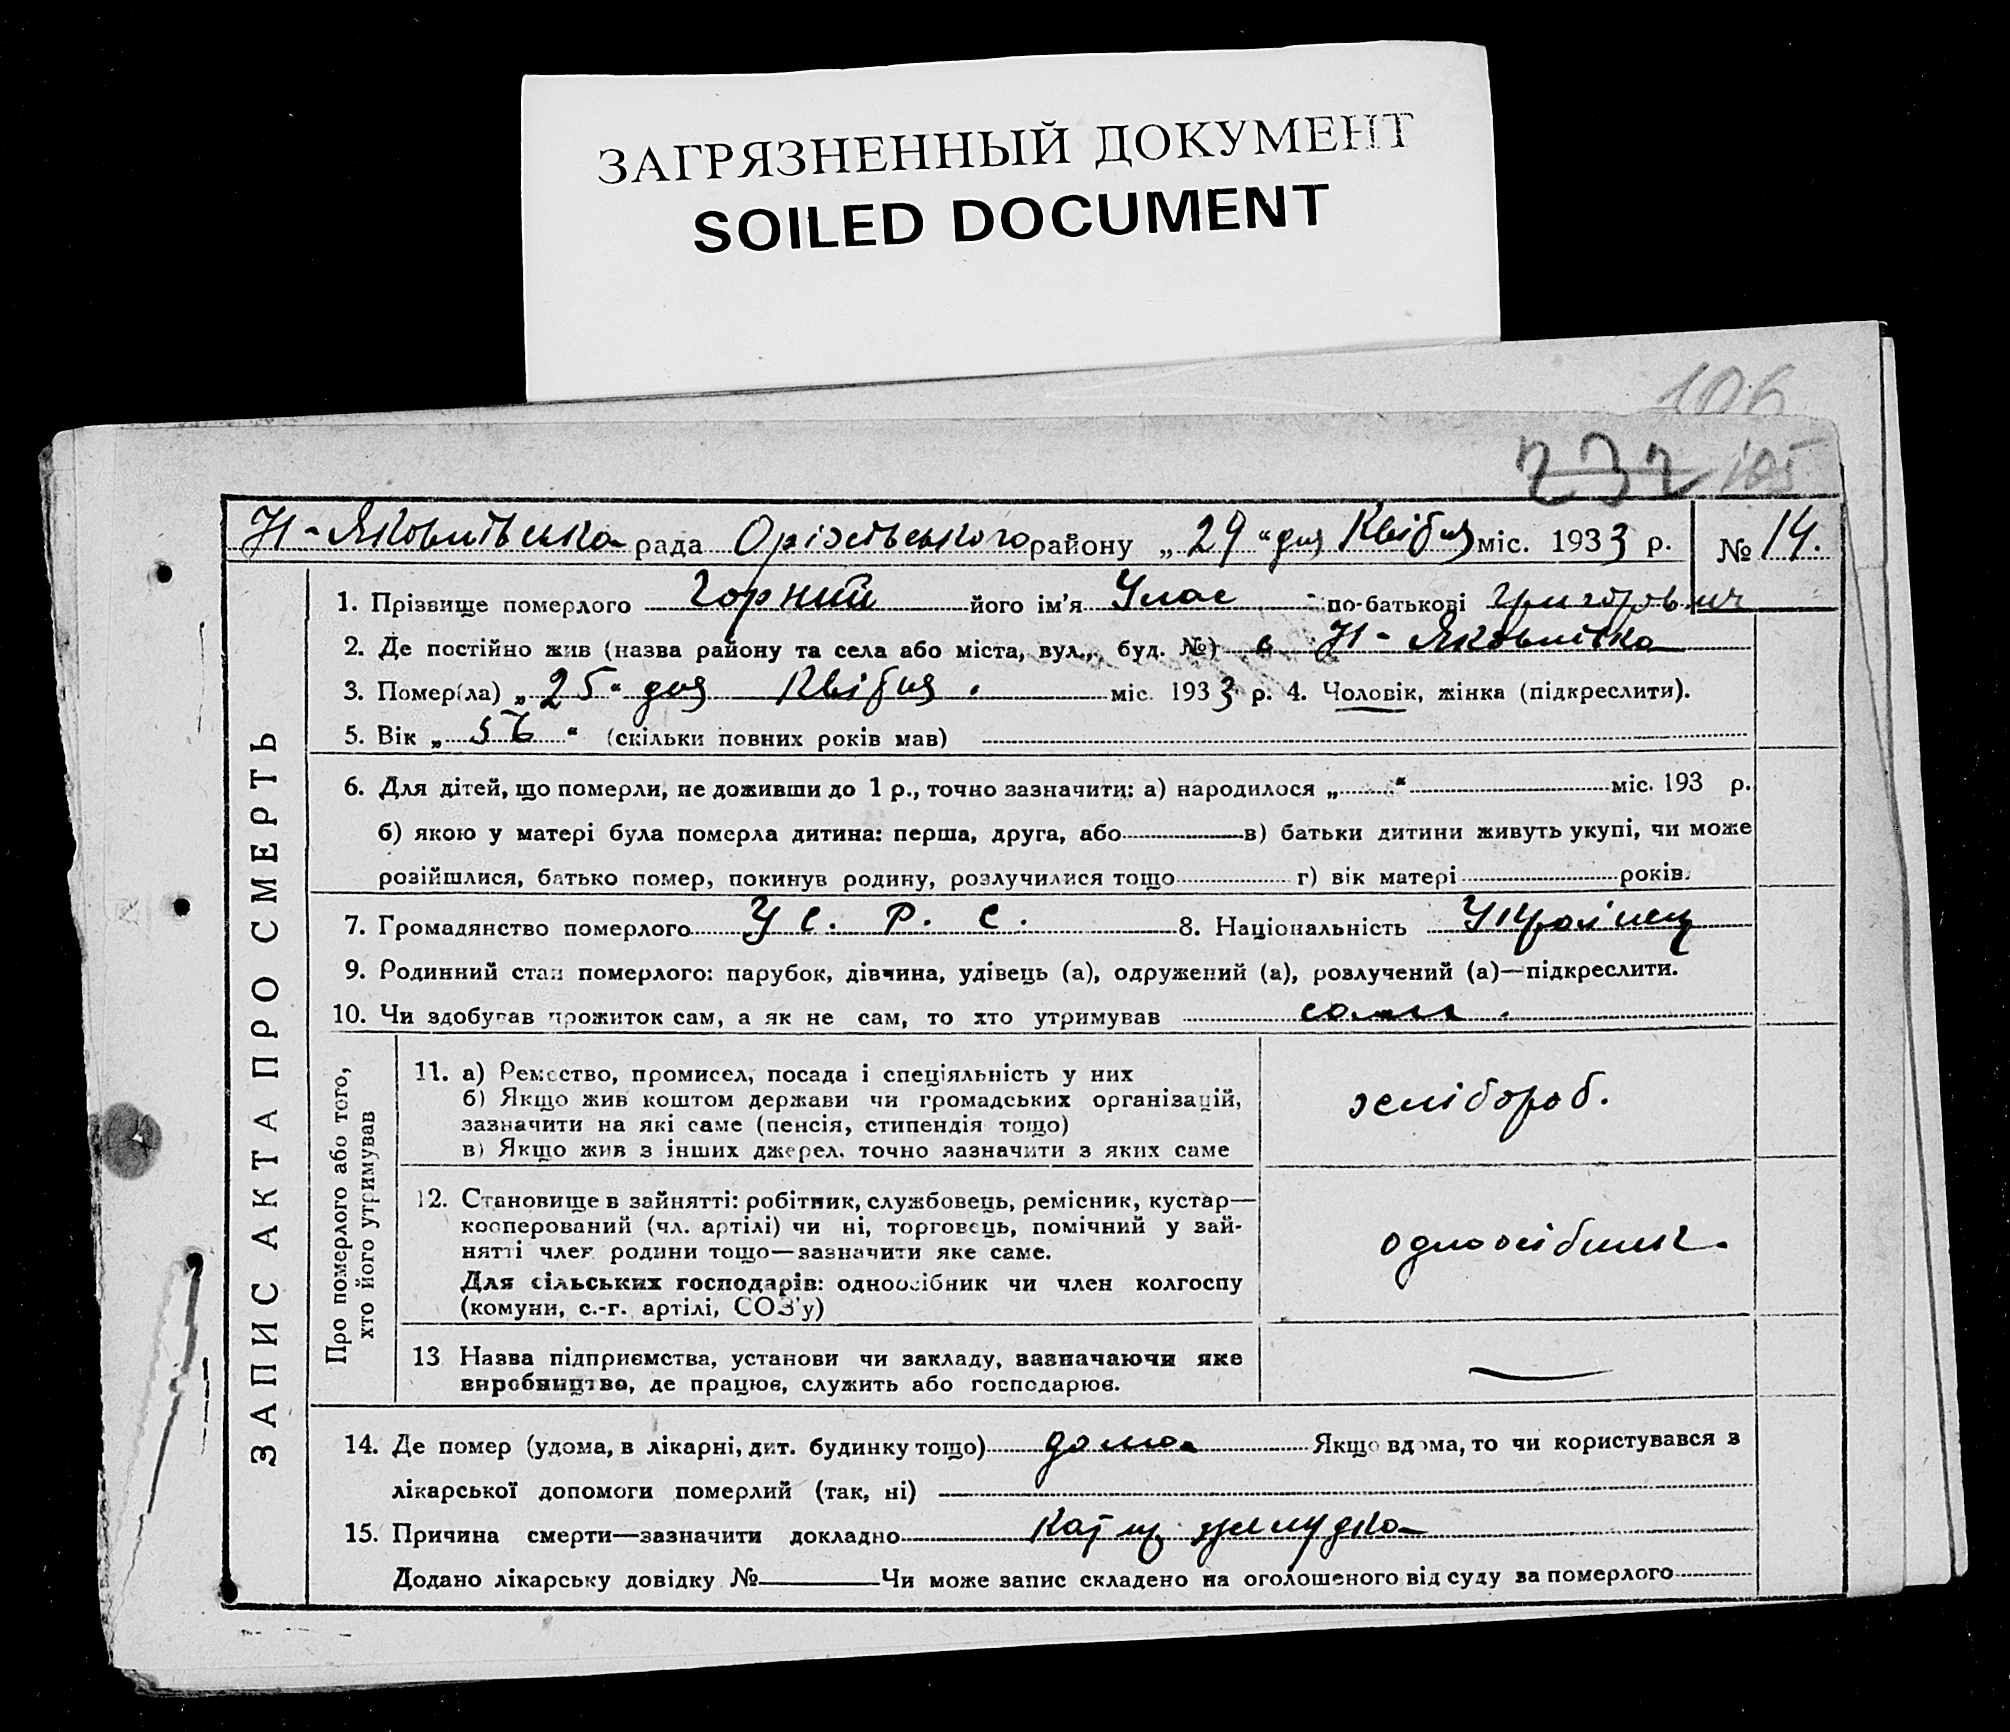 ЗАГРЯЗНЕННЫЙ ДОКУМЕНТ
SOILED DOCUMENT
106
232 105
Н-Яковлівська рада Оріхівського району „29“ дня Квітня міс. 1933 р. № 14.
1. Прізвище померлого Горний його ім'я Улас по-батькові Григорович
2. Де постійно жив (назва району та села або міста, вул., буд. №) с Н-Яковлівка
3. Помер(ла) „25“ дня Квітня. міс. 1933 р. 4. Чоловік, жінка (підкреслити).
5. Вік „56“ (скільки повних років мав)
6. Для дітей, що померли, не доживши до 1 р., точно зазначити: а) народилося „ “ міс. 193 р.
б) якою у матері була померла дитина: перша, друга, або в) батьки дитини живуть укупі, чи може
розійшлися, батько помер, покинув родину, розлучилися тощо г) вік матері років.
7. Громадянство померлого У С. Р. С. 8. Національність Українец
9. Родинний стан померлого: парубок, дівчина, удівець (а), одружений (а), розлучений (а)—підкреслити.
10. Чи здобував прожиток сам, а як не сам, то хто утримував сам.
ЗАПИС АКТА ПРО СМЕРТЬ
Про померлого або того,
хто його утримував
11. а) Ремество, промисел, посада і спеціяльність у них
б) Якщо жив коштом держави чи громадських організацій,
зазначити на які саме (пенсія, стипендія тощо)
в) Якщо жив з інших джерел, точно зазначити з яких саме
хлібороб.
12. Становище в зайнятті: робітник, службовець, ремісник, кустар—
кооперований (чл. артілі) чи ні, торговець, помічний у зай-
нятті член родини тощо—зазначити яке саме.
Для сільських господарів: одноосібник чи член колгоспу
(комуни, с.-г. артілі, СОЗ'у)
одноосібник.
13 Назва підприємства, установи чи закладу, зазначаючи яке
виробництво, де працює, служить або господарює.
14. Де помер (удома, в лікарні, дит. будинку тощо) дома Якщо вдома, то чи користувався з
лікарської допомоги померлий (так, ні)
15. Причина смерти—зазначити докладно желудка
Додано лікарську довідку № Чи може запис складено на оголошеного від суду за померлого